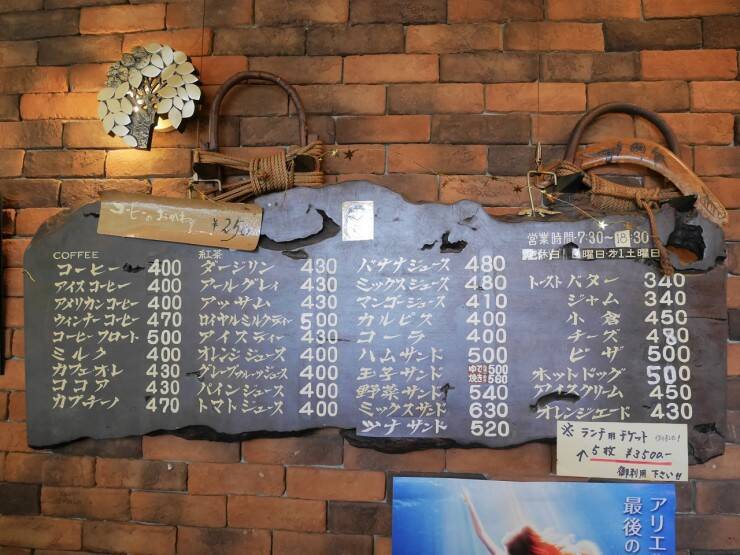 コーヒーのおかわり ¥250
営業時間・7:30～18:30
定休日 日曜日・第1土曜日
COFFEE
コーヒー 400
アイスコーヒー 400
アメリカンコーヒー 400
ウィンナーコーヒー 470
コーヒーフロート 500
ミルク 400
カフェオレ 430
ココア 430
カプチーノ 470
紅茶
ダージリン 430
アールグレイ 430
アッサム 430
ロイヤルミルクティー 500
アイスティー 430
オレンジジュース 400
グレープフルーツジュース 400
パインジュース 400
トマトジュース 400
バナナジュース 480
ミックスジュース 480
マンゴージュース 410
カルピス 400
コーラ 400
ハムサンド 500
玉子サンド ゆで500
焼き560
野菜サンド 540
ミックスサンド 630
ツナサンド 520
トーストバター 340
ジャム 340
小倉 450
チーズ 430
ピザ 500
ホットドッグ 500
アイスクリーム 450
オレンジエード 430
※ランチ用チケット
↑5枚 ¥3500-
御利用下さい!!
アリエ
最後の